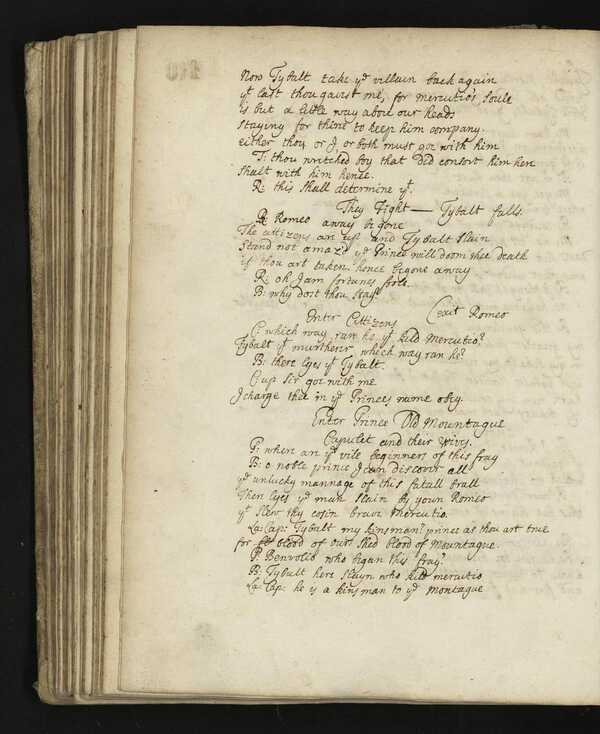 Now Tybalt take yᵉ villain back again
yᵗ last thou gavest me, for mercutio's soule
is but a little way above our heads
staying for thine to keep him company.
either thou or J, or both must goe with him
T: thou wretched boy that did consort him here
shalt with him hence.
R: this shall determine yᵗ.
They Fight — Tybalt falls.
B: Romeo away be gone
The cittizens are up and Tybalt slain
stand not amaz'd yᵉ Prince will doom thee death
if thou art taken. hence begone away
R: oh J am fortunes foole.
B: why dost thou stay?
Enter Cittizens (exit Romeo
C: which way ran he yᵗ kild Mercutio?
Tybalt yᵗ murtherer which way ran he?
B: there lyes yᵗ Tybalt.
C: up sir goe with me
J charge thee in yᵉ Princes name obey.
Enter Prince Old Mountague
Capulet and their wives.
P: where are yᵉ vile beginners of this fray
B: o noble prince J can discover all
yᵉ unlucky mannage of this fatall brall
There lyes yᵉ man slain by young Romeo
yᵗ slew thy cosin brave Mercutio.
La: Cap: Tybalt my kinsman! prince as thou art true
for blood of ours shed blood of Mountague.
P Benvolio who began this fray?
B: Tybalt here slayn who kild mercutio
La: Cap: he is a kinsman to yᵉ Montague